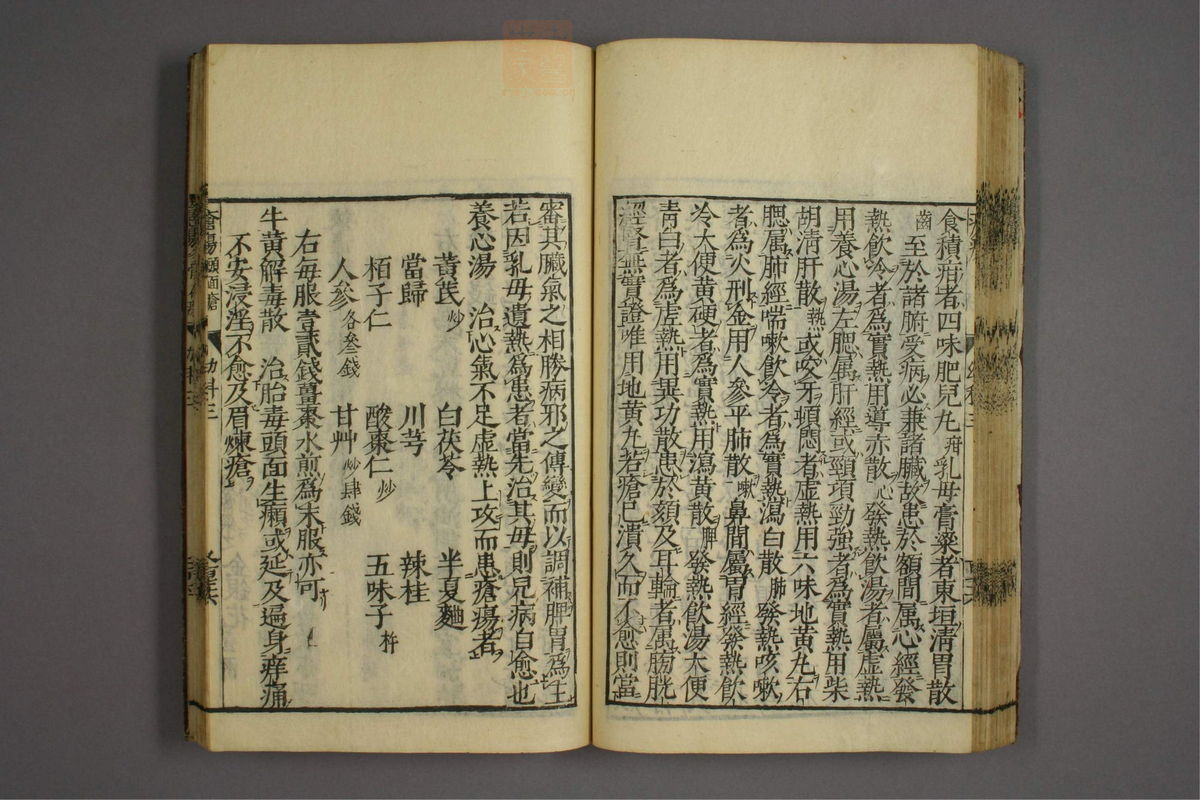 食積疳者四味肥兒丸疳乳母膏粱者東垣清胃散
齒至於諸腑受病必兼諸臟故患於額間属心經發
熱飲冷者為實熱用導赤散心發熱飲湯者屬虛熱
用養心湯左腮属肝經或頸項勁強者為實熱用柴
胡清肝散熱或咬牙頓悶者虛熱用六味地黄丸右
腮属肺經喘嗽飲冷者為實熱瀉白散肺發熱咳嗽
者為火刑金用人參平肺散嗽鼻間屬胃經發熱飲
冷大便黄硬者為實熱用瀉黄散脾發熱飲湯大便
青白者為虛熱用異功散患於頦及耳輪者属膀胱
經腎無實證唯用地黄丸若瘡已潰久而不愈則當
審其臟氣之相勝病邪之傳變而以調補脾胃為主
若因乳母遺熱為患者當先治其母則兒病自愈也
養心湯 治心氣不足虛熱上攻而患瘡瘍者
黄芪炒 白茯苓 半夏麯
當歸 川芎 辣桂
栢子仁 酸棗仁炒 五味子杵
人參各叄錢 甘艸炒肆錢
右每服壹貳錢薑棗水煎為末服亦可
牛黄解毒散 治胎毒頭面生癩或延及遍身痒痛
不安浸淫不愈及眉煉瘡